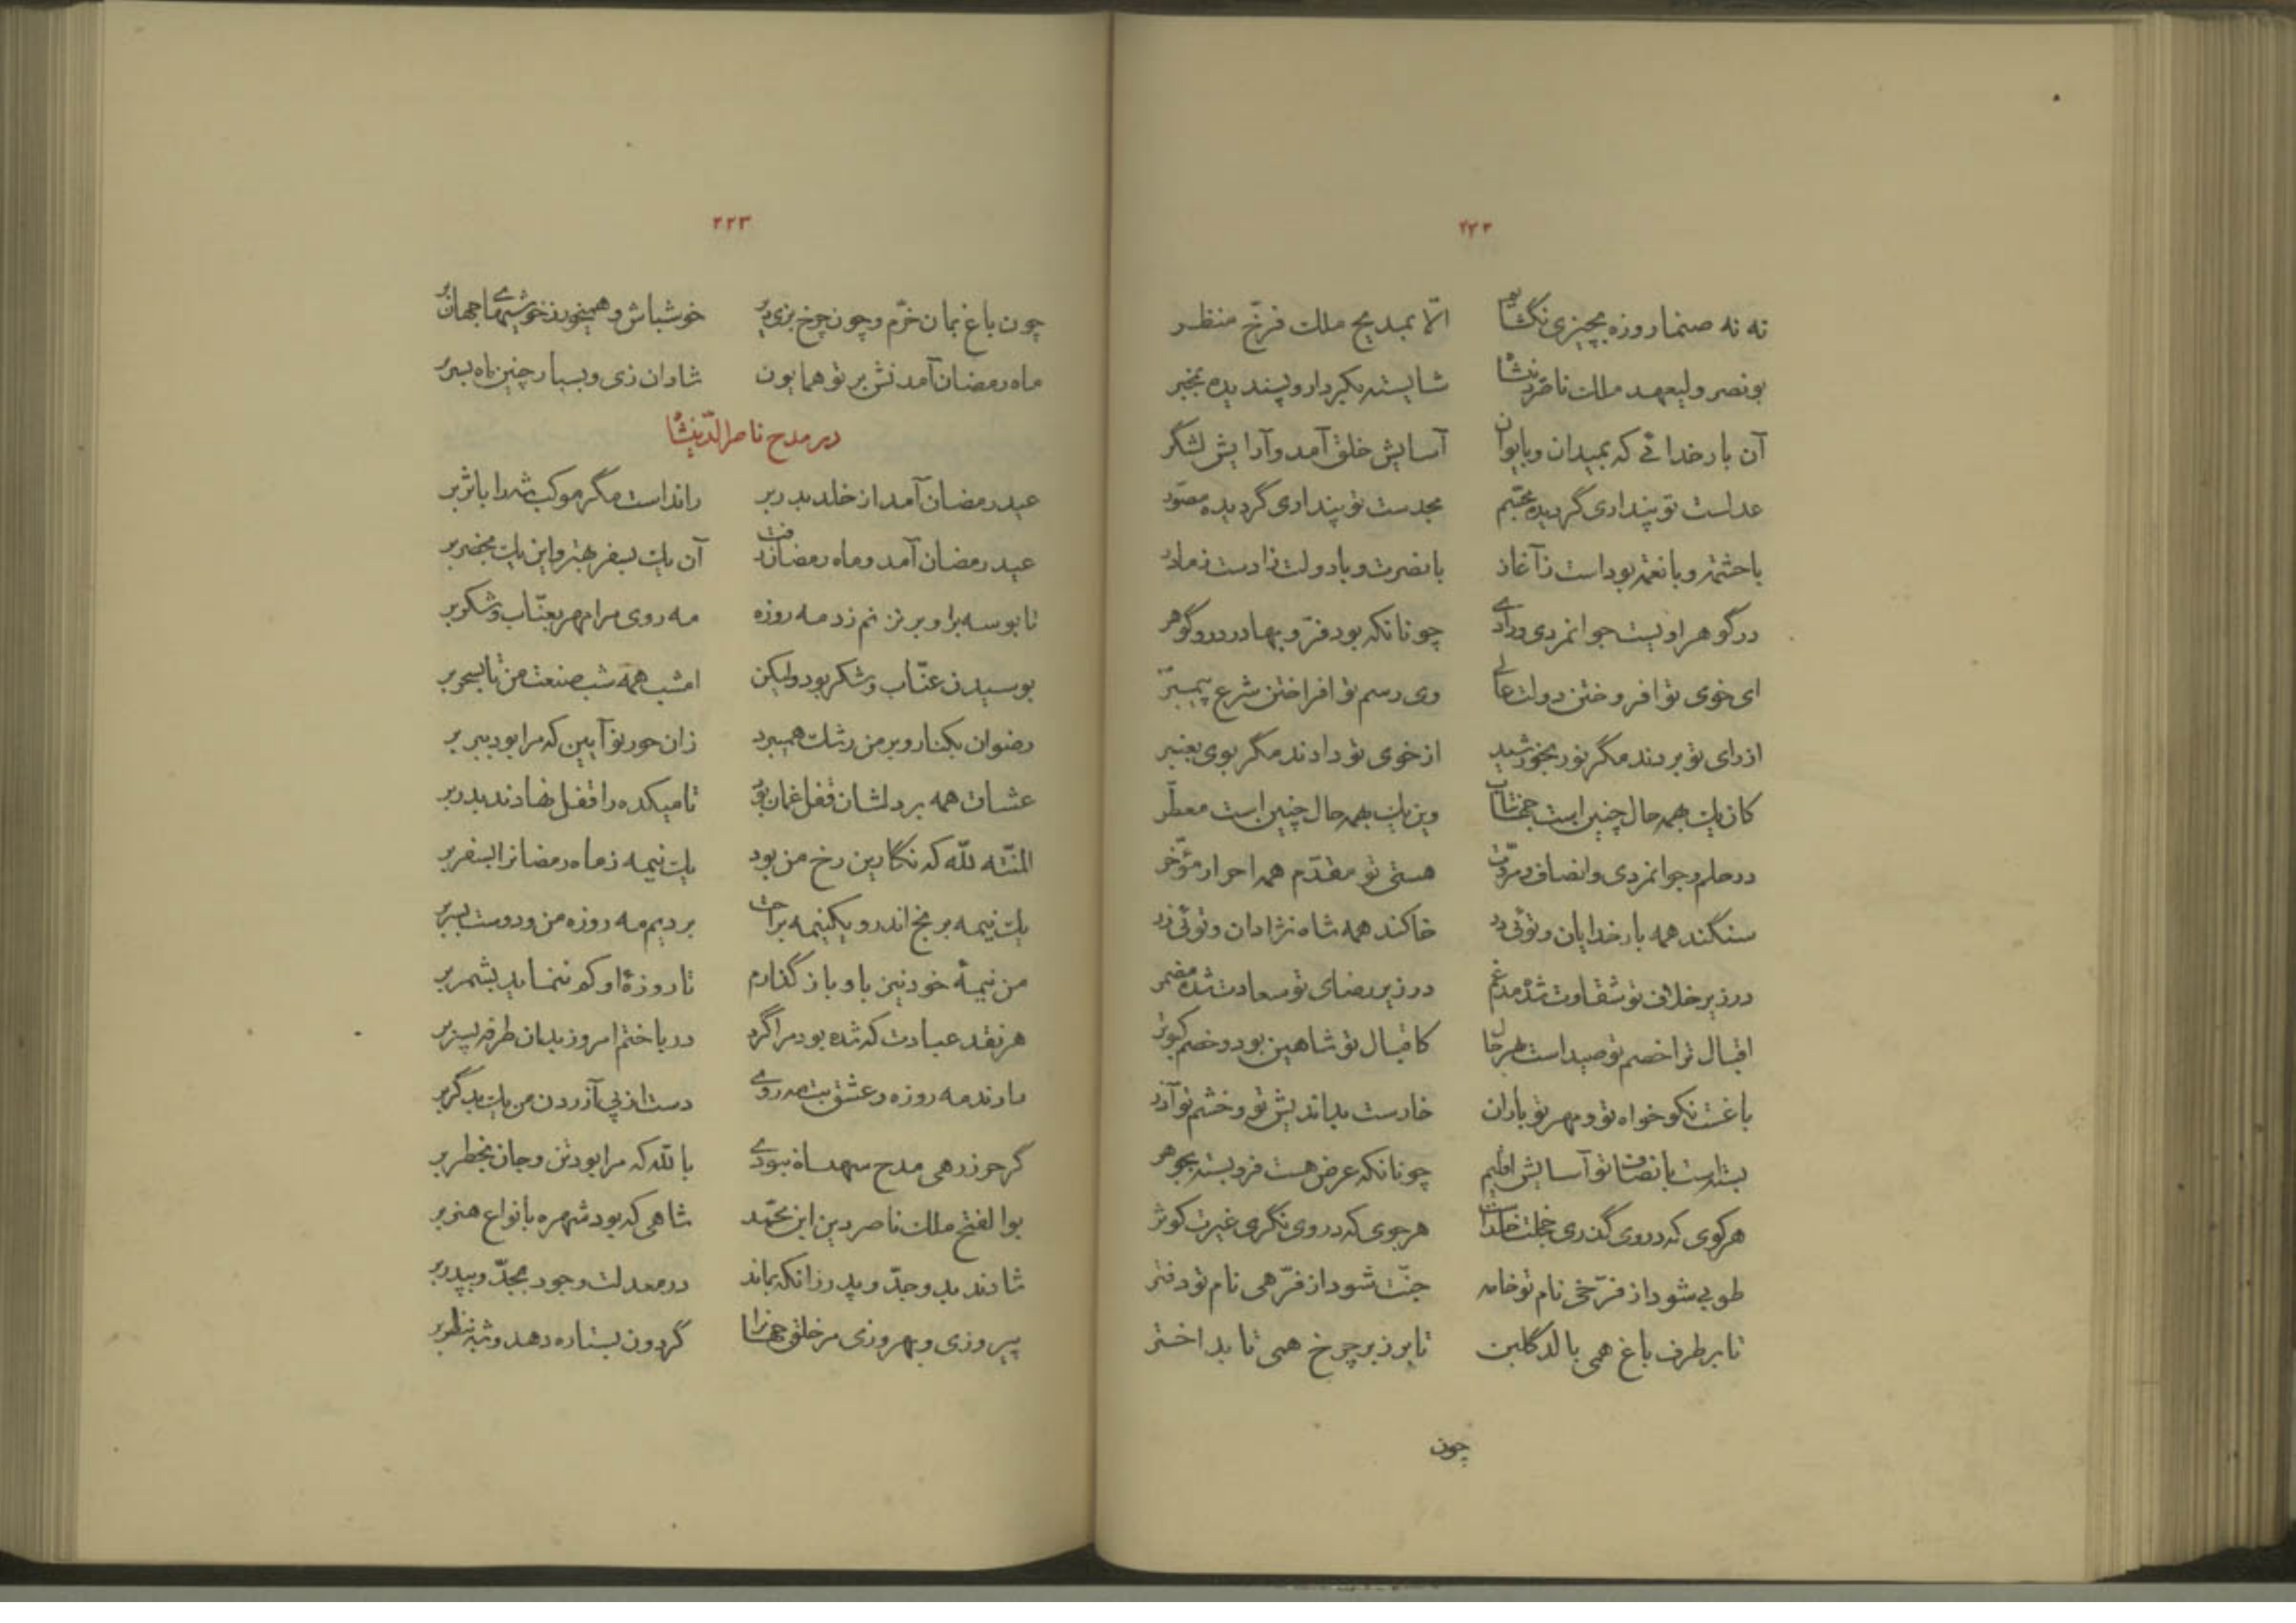 ۲۲۲
نه نه صنما روزه بچیزی نگشایم الّا بمدیح ملک فرّخ منظر
بونصر ولیعهد ملک ناصردینشاه شایسته بکردار و پسندیده بمخبر
آن بار خدائی که بمیدان و بایوان آسایش خلق آمد و آرایش لشگر
عدلست تو پنداری گردیده مجسّم مجدست تو پنداری گردیده مصوّر
باحشمت و بانعمت بوداست ز آغاز بانصرت و بادولت زادست ز مادر
در گوهر اویست جوانمردی و رادی چونانکه بود فرّ و بها در در و گوهر
ای خوی تو افروختن دولت عالی وی رسم تو افراختن شرع پیمبر
از رای تو بردند مگر نور بخورشید از خوی تو دادند مگر بوی بعنبر
کان یک بهمه حال چنین است جهانتاب وین یک بهمه حال چنین است معطّر
در حلم و جوانمردی و انصاف و مروّت هستی تو مقدّم همه احرار مؤخّر
سنگند همه بار خدایان و توئی درّ خاکند همه شاه نژادان و توئی زر
در زیر خلاف تو شقاوت شده مدغم در زیر رضای تو سعادت شده مضمر
اقبال ترا خصم تو صیداست بهر حال کاقبال تو شاهین بود و خصم کبوتر
باغست نکوخواه تو و مهر تو باران خارست بداندیش تو و خشم تو آذر
بسته‌است بانصاف تو آسایش اقلیم چونانکه عرض هست فرو بسته بجوهر
هر کوی که در وی گذری خجلت خلداست هر جوی که در وی نگری غیرت کوثر
طوبی شود از فرّخی نام تو خامه جنّت شود از فرّهی نام تو دفتر
تا بر طرف باغ همی بالد گلبن تا بر زبر چرخ همی تابد اختر
چون
۲۲۳
چون باغ بمان خرّم و چون چرخ بزی دیر خوشباش و همیخور ز خوشیهای جهان بر
ماه رمضان آمدنش بر تو همایون شادان زی و بسیار چنین ماه بسر بر
در مدح ناصرالدّینشاه
عید رمضان آمد از خلد بدر بر رانداست مگر موکب شه را باثر بر
عید رمضان آمد و ماه رمضان رفت آن یک بسفر بهتر و این یک بحضر بر
تا بوسه برا و بر نزنم زد مه روزه مه روی مرا مهر بعنّاب و شکر بر
بوسیدن عنّاب و شکر بود ولیکن امشب همه شب صنعت من تا بسحر بر
رضوان بکنار و بر من رشک همیبرد زان حور نوآیین که مرا بود ببر بر
عشاق همه بر دلشان قفل غمان بود تا میکده را قفل نهادند بدر بر
المنّته للّه که نگارین رخ من بود یک نیمه ز ماه رمضانرا بسفر بر
یک نیمه برنج اندر و یکنیمه براحت بردیم مه روزه من و دوست بسر بر
من نیمهٔ خود نیز باو باز گذارم تا روزهٔ او کم ننماید بشمر بر
هر نقد عبادت که شده بود مرا گرد درباختم امروز بدان طرفه پسر بر
دارند مه روزه و عشق بت مه‌روی دست از پی آزردن من یک بدگر بر
گر حرز رهی مدح شهنشاه نبودی باللّه که مرا بود تن و جان بخطر بر
بوالفتح ملک ناصر دین ابن محمّد شاهی که بود شهره بانواع هنر بر
شادند بدو جدّ و پدر زانکه بماند در معدلت وجود بجدّ و بپدر بر
پیروزی و بهروزی مر خلق جهانرا گردون بستاره دهد و شه بنظر بر